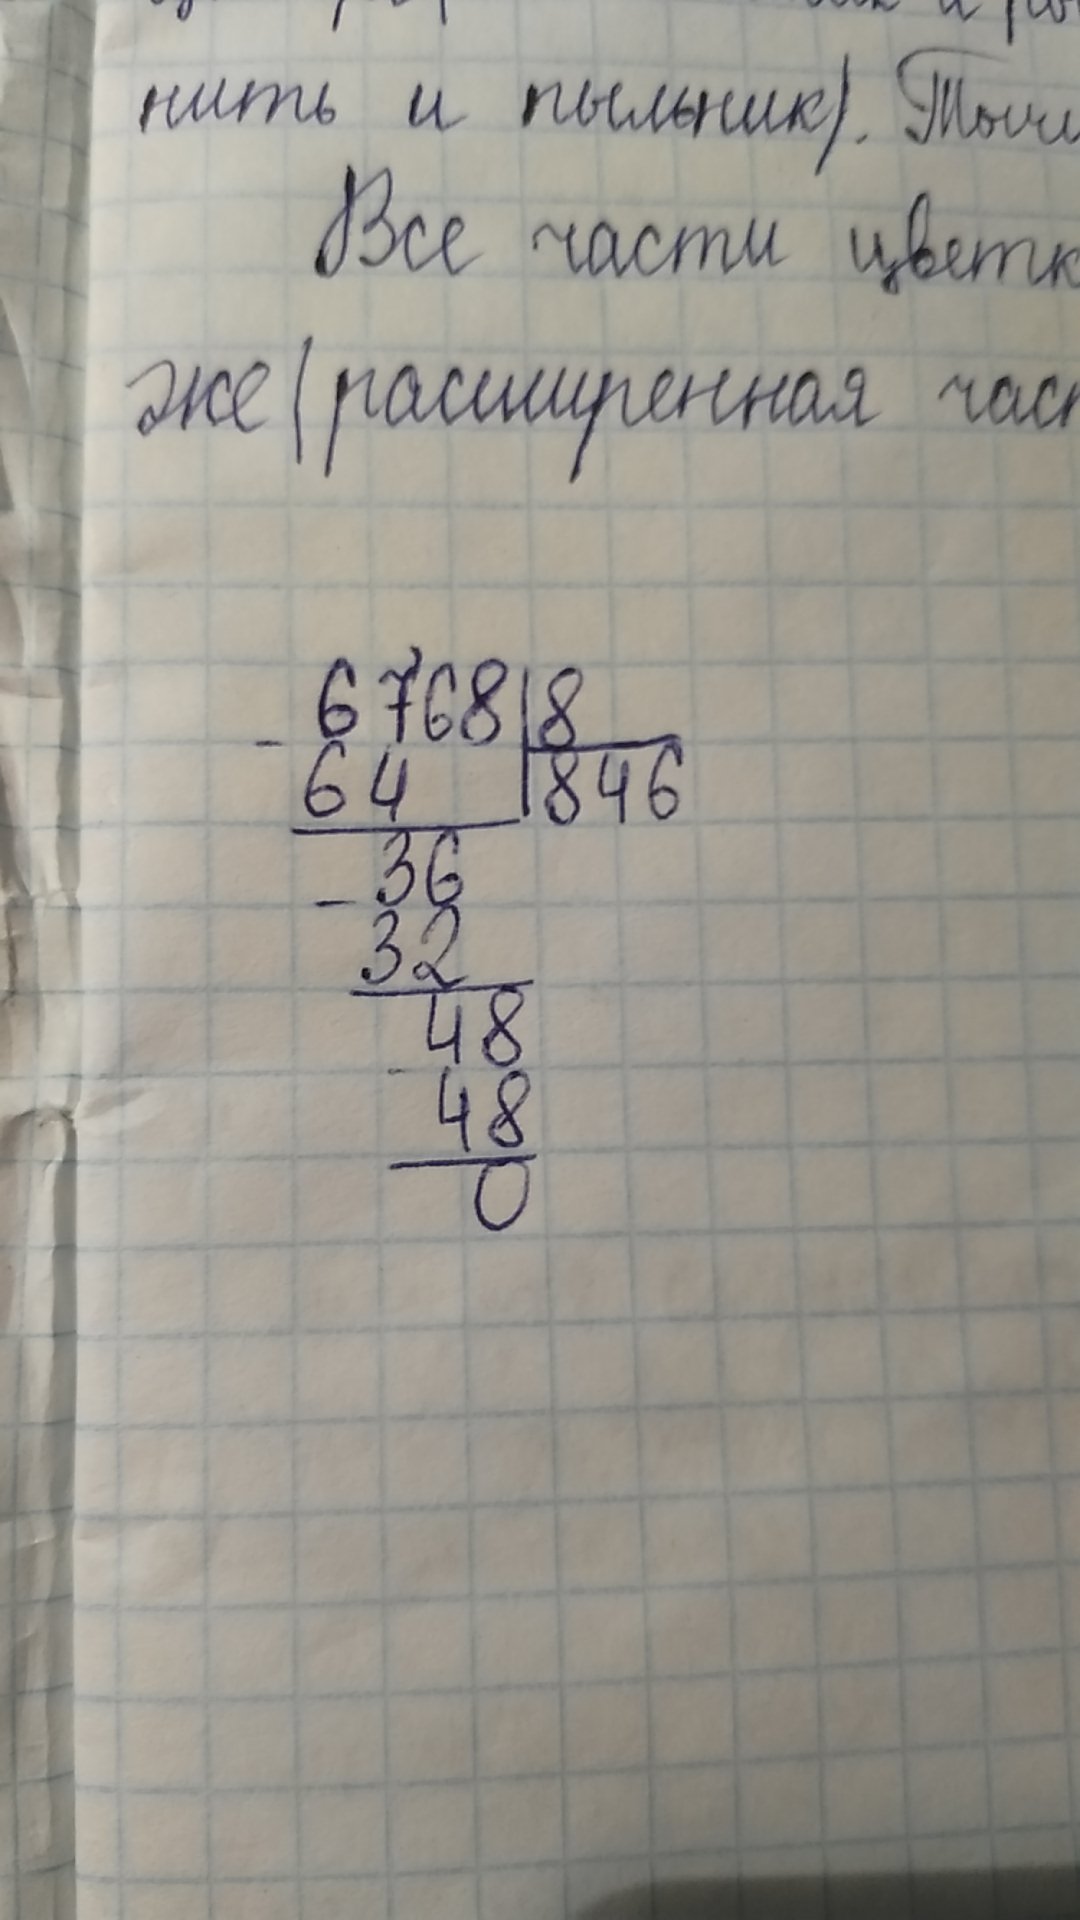 нить и пыльник). Тычи
Все части цветк
же (расширенная част
6768|8
- 64 |846
36
- 32
48
- 48
0